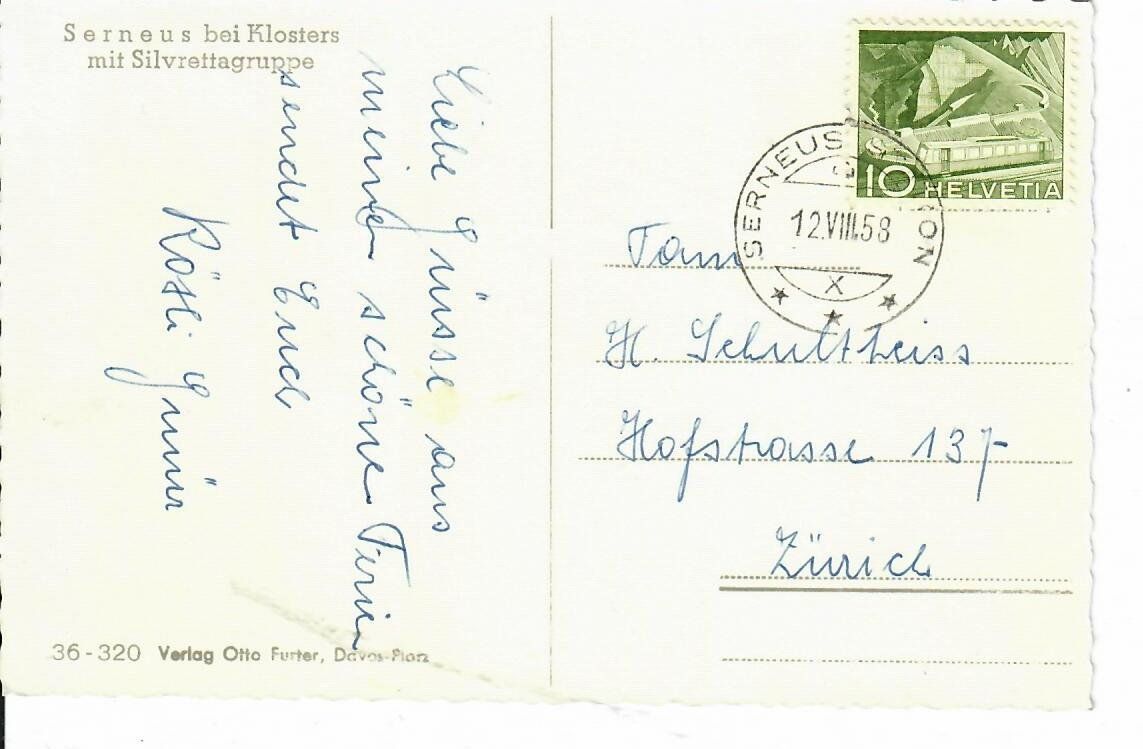 Serneus bei Klosters
mit Silvrettagruppe
Liebe Grüsse aus
meinen schönen Ferien
sendet Euch
Rösli Gmür
36-320 Verlag Otto Furter, Davos-Platz
10 HELVETIA
SERNEUS STATION
12.VIII.58
X
Fam
H. Schultheiss
Hofstrasse 137
Zürich